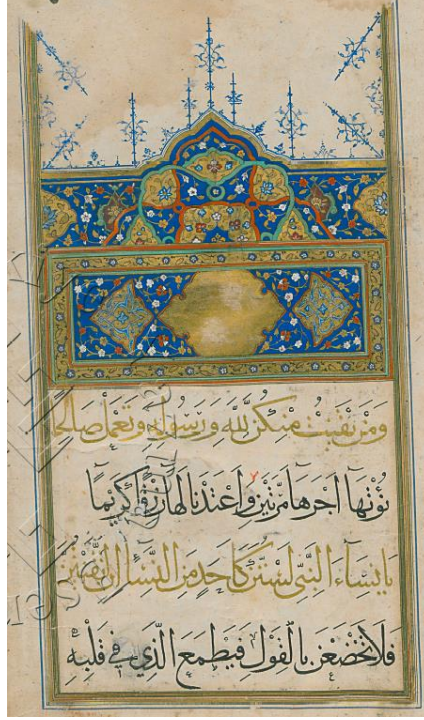 وَمَنْ يَقْنُتْ مِنْكُنَّ لِلّٰهِ وَرَسُولِهِ وَتَعْمَلْ صَالِحًا
نُؤْتِهَا اَجْرَهَا مَرَّتَيْنِ وَاَعْتَدْنَا لَهَا رِزْقًا كَرِيمًا
يَا نِسَاءَ النَّبِيِّ لَسْتُنَّ كَاَحَدٍ مِنَ النِّسَاءِ اِنِ اتَّقَيْتُنَّ
فَلَا تَخْضَعْنَ بِالْقَوْلِ فَيَطْمَعَ الَّذِي فِي قَلْبِهِ